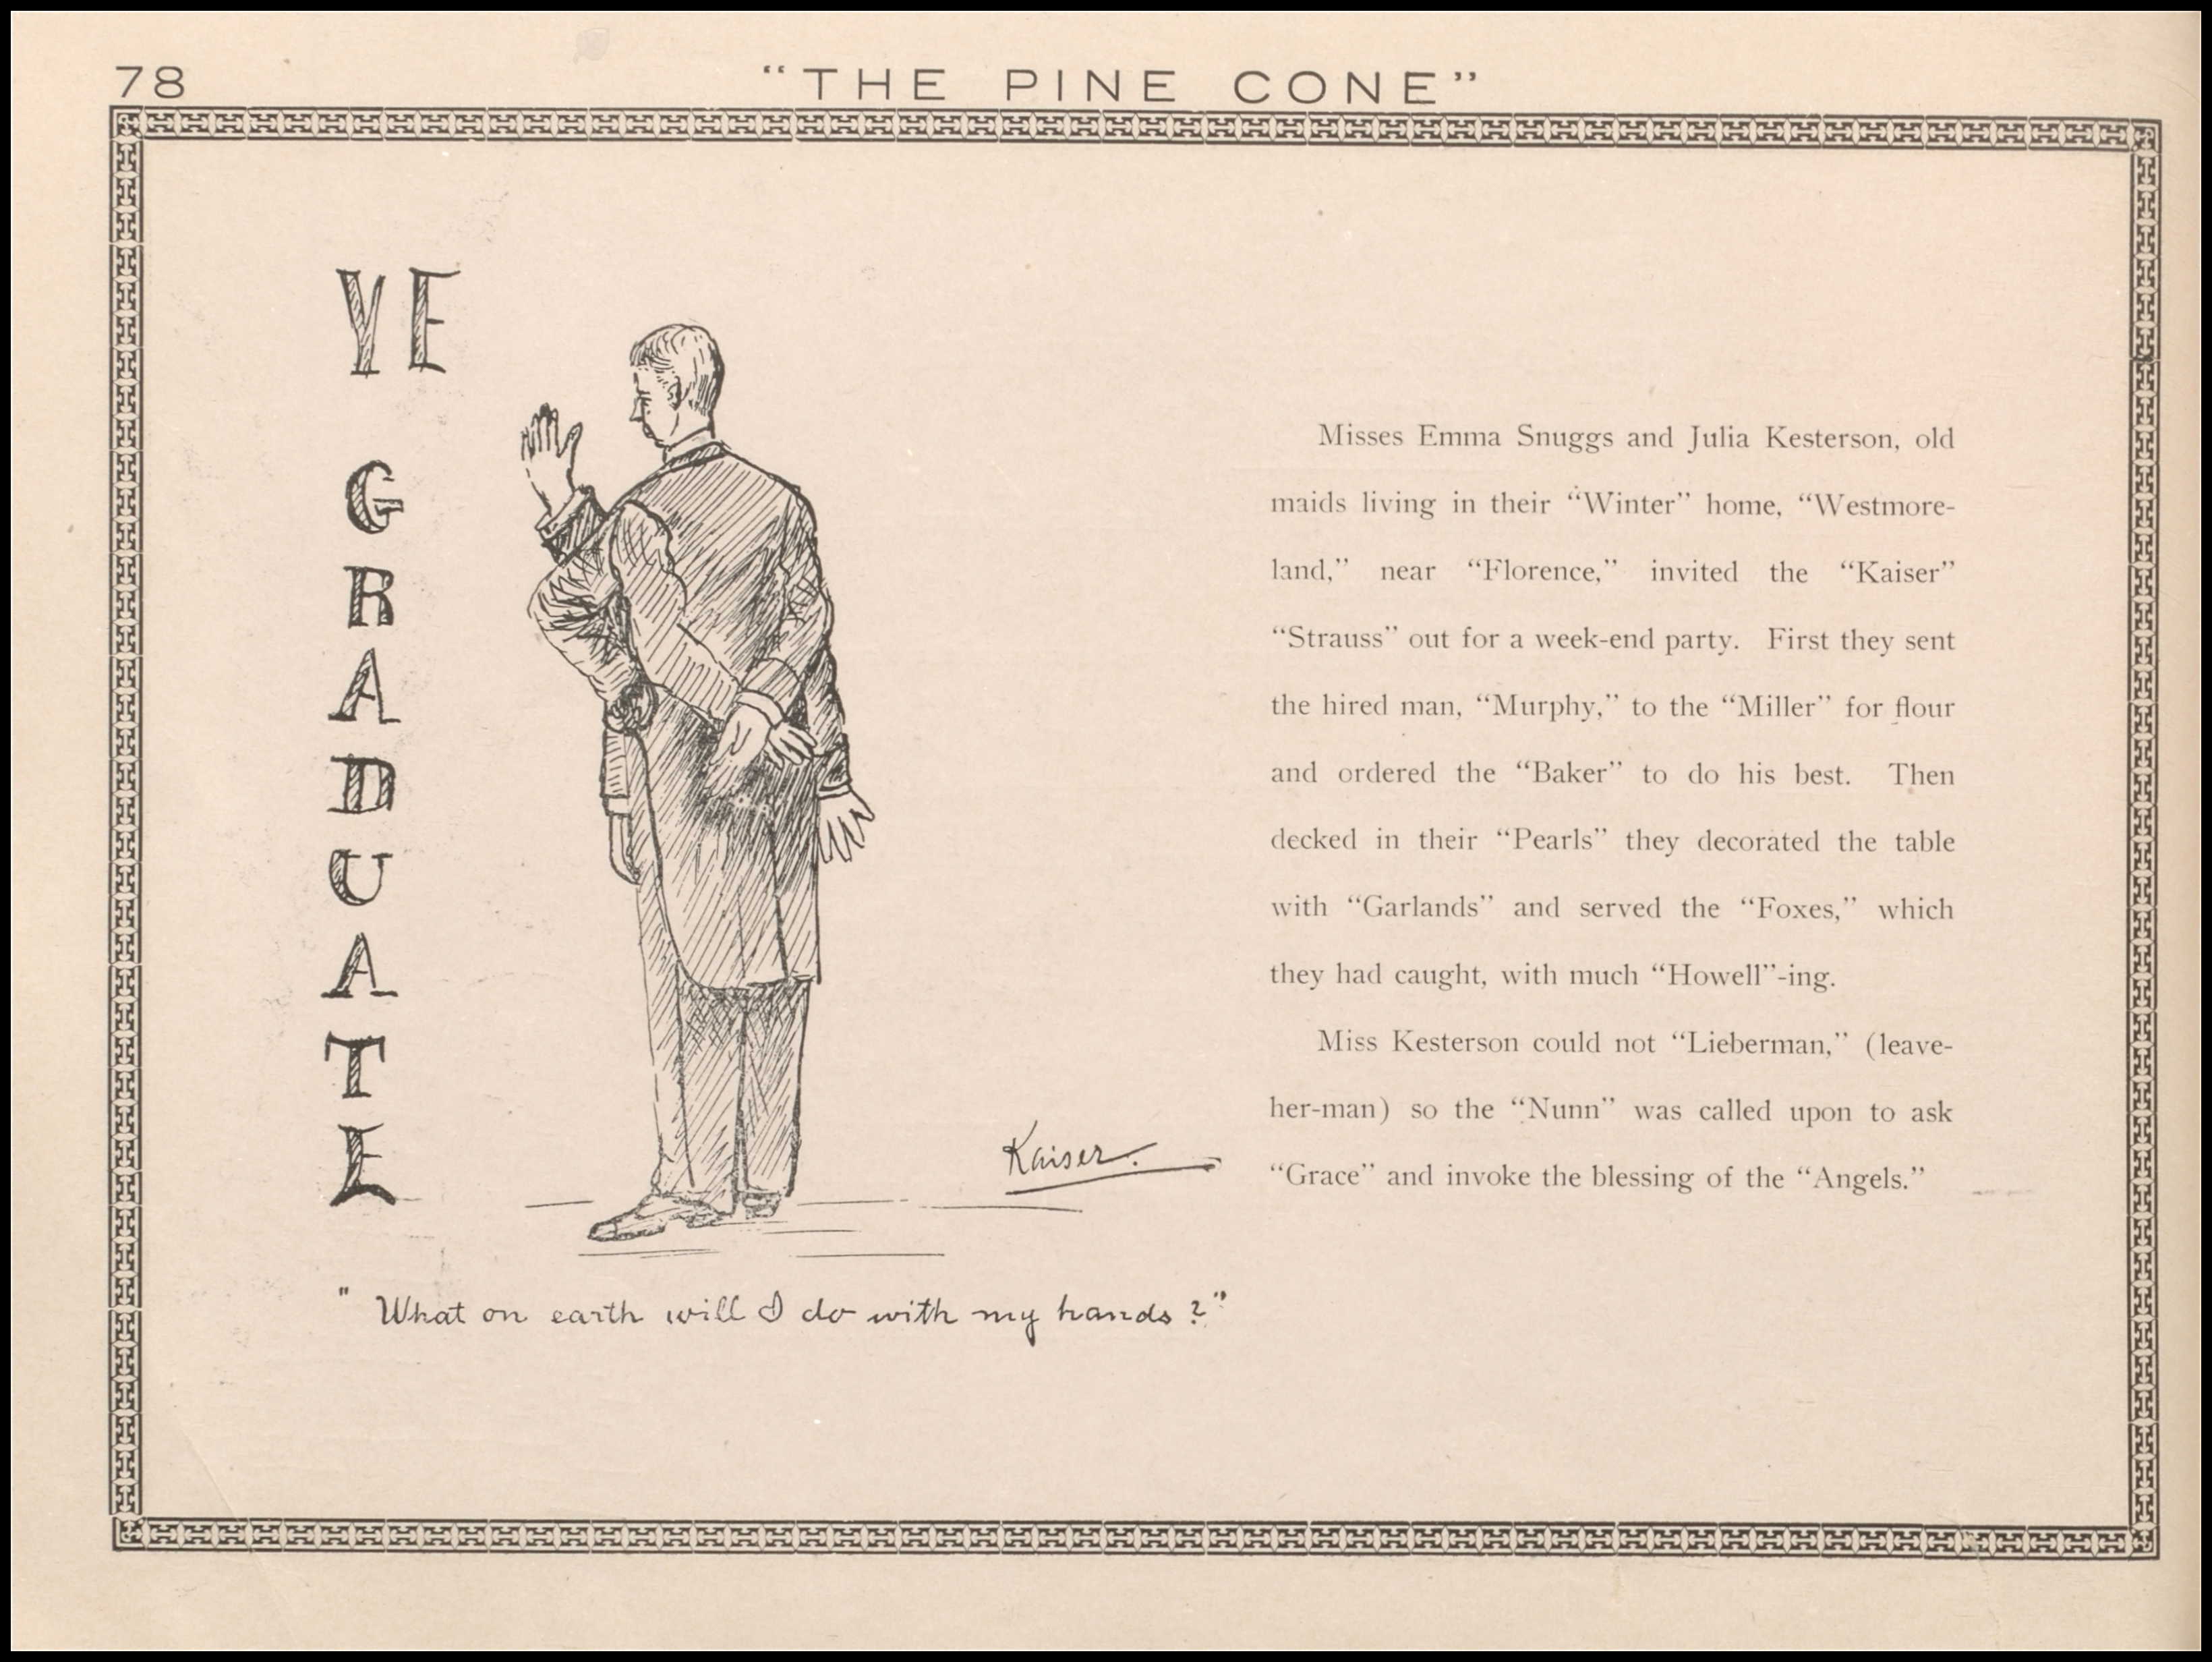 78
“THE PINE CONE”
YE
GRADUATE
Kaiser.
" What on earth will I do with my hands ? "
Misses Emma Snuggs and Julia Kesterson, old
maids living in their “Winter” home, “Westmore-
land,” near “Florence,” invited the “Kaiser”
“Strauss” out for a week-end party. First they sent
the hired man, “Murphy,” to the “Miller” for flour
and ordered the “Baker” to do his best. Then
decked in their “Pearls” they decorated the table
with “Garlands” and served the “Foxes,” which
they had caught, with much “Howell”-ing.
Miss Kesterson could not “Lieberman,” (leave-
her-man) so the “Nunn” was called upon to ask
“Grace” and invoke the blessing of the “Angels.”